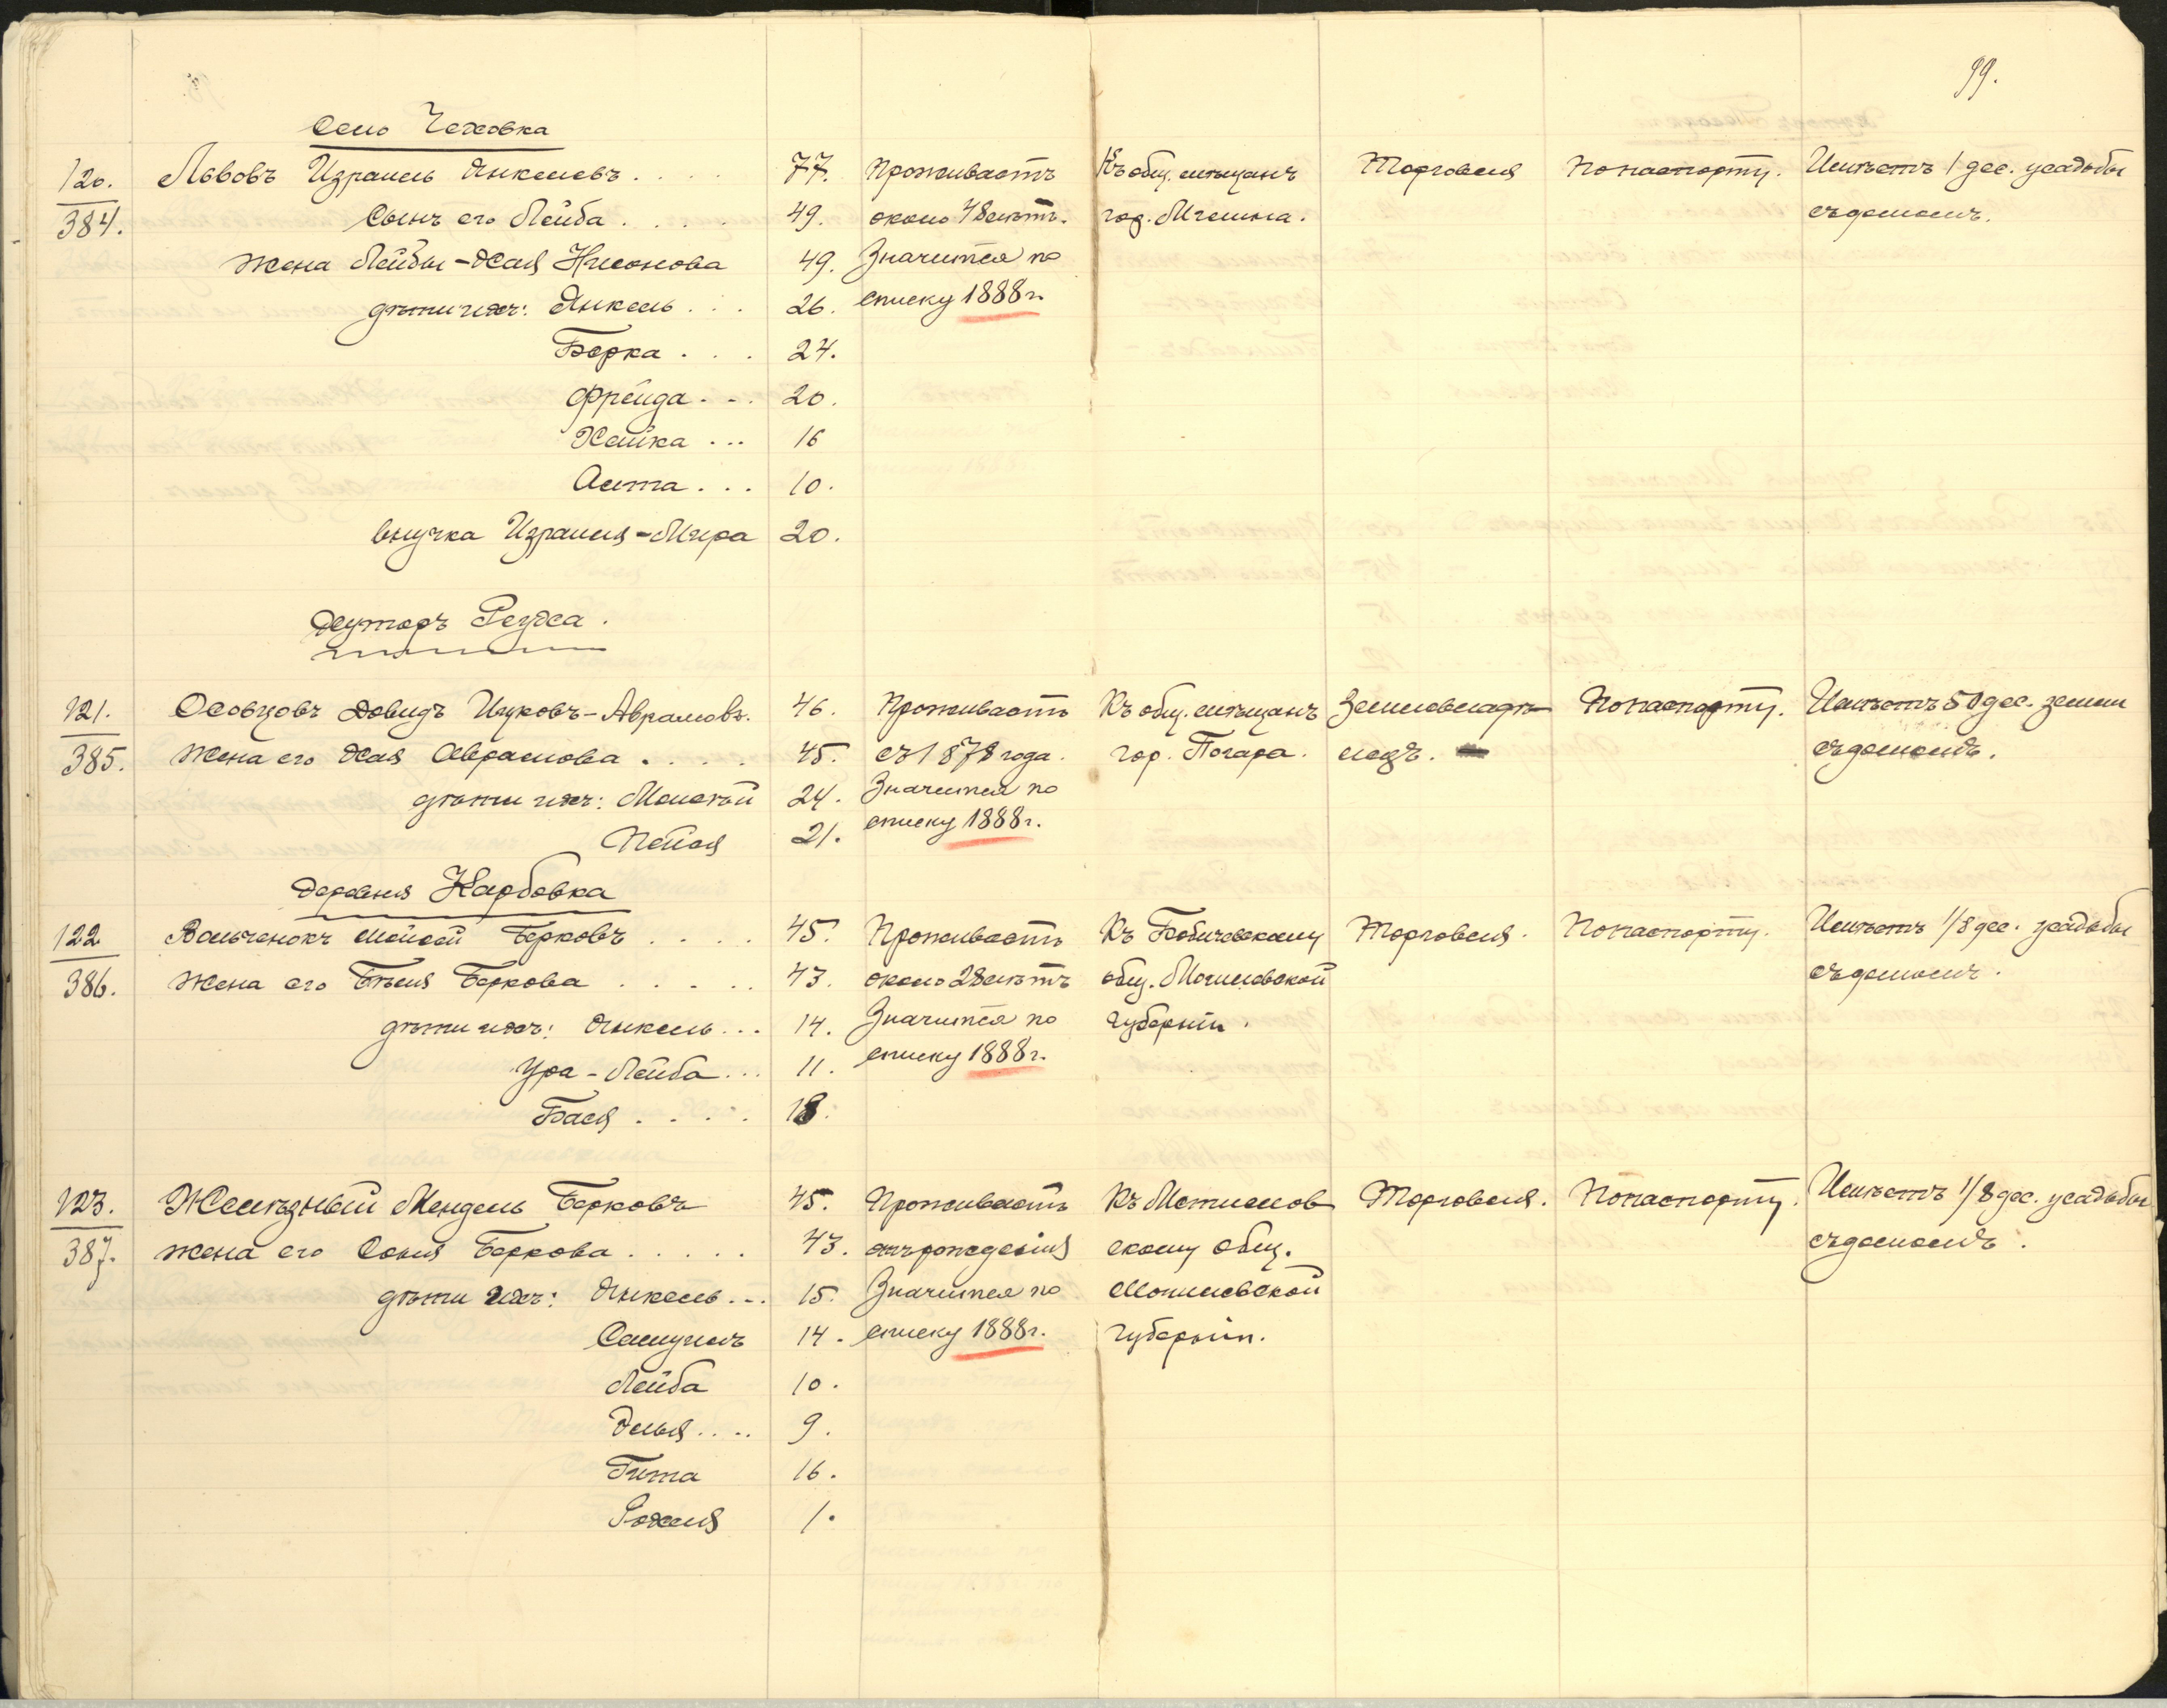 99.
Село Чеховка
120. Львовъ Израиль Янкелевъ . . . . 77. Проживаетъ Къ общ. мѣщанъ Торговля По паспорту. Имѣетъ 1 дес. усадьбы
384. Сынъ его Лейба . . . . 49. около 48 лѣтъ. гор. Мглина. съ домомъ.
Жена Лейбы - Хая Нисонова 49. Значится по
дѣти ихъ: Янкель . . . 26. списку 1888 г.
Берка . . . 24.
Фрейда . . . 20.
Хайка . . . 16
Аста . . . 10.
внучка Израиля - Мира 20.
Хуторъ Реуха.
121. Осовцовъ Довидъ Ицковъ-Аврамовъ. 46. Проживаетъ Къ общ. мѣщанъ Землевладѣ- По паспорту. Имѣетъ 50 дес. земли
385. Жена его Хая Аврамова . . . . 45. съ 1878 года. гор. Погара. лецъ. съ домомъ.
дѣти ихъ: Моисей 24. Значится по
Пейся 21. списку 1888 г.
Деревня Карбовка
122 Вольченокъ Мойсей Берковъ . . . . 45. Проживаетъ Къ Бобичевскому Торговля. По паспорту. Имѣетъ 1/8 дес. усадьбы
386. Жена его Бѣля Беркова . . . . . 43. около 28 лѣтъ общ. Могилевской съ домомъ.
дѣти ихъ: Янкель . . . 14. Значится по губерніи.
Ура - Лейба . . . 11. списку 1888 г.
Бася . . . . 18.
123. Желѣзный Мендель Берковъ 45. Проживаетъ Къ Могилевов Торговля. По паспорту. Имѣетъ 1/8 дес. усадьбы
387. жена его Соня Беркова . . . . . 43. отъ рожденія скому общ. съ домомъ.
дѣти ихъ: Янкель . . . 15. Значится по Могилевской
Самуилъ 14. списку 1888 г. губерніи.
Лейба 10.
Элья . . . . 9.
Гита 16.
Рохля 1.